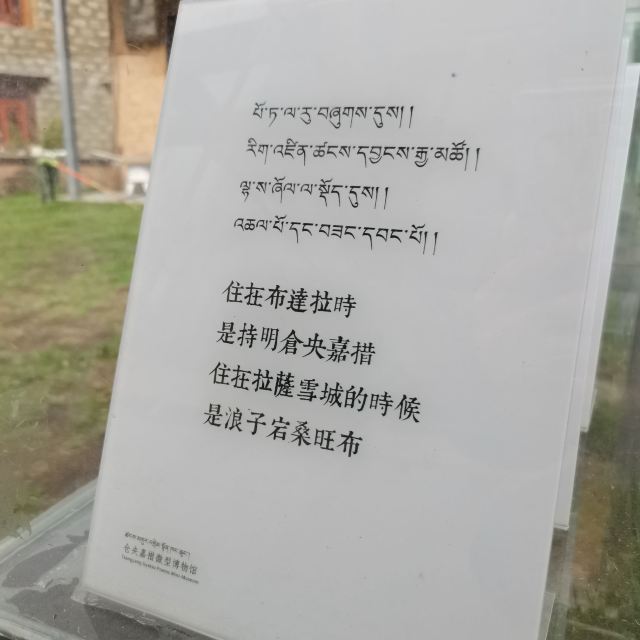 པོ་ཏ་ལ་རུ་བཞུགས་དུས།།
རིག་འཛིན་ཚངས་དབྱངས་རྒྱ་མཚོ།།
ལྷ་ས་ཞོལ་ལ་སྡོད་དུས།།
འཆལ་པོ་དང་བཟང་དབང་པོ།།
住在布達拉時
是持明倉央嘉措
住在拉薩雪城的時候
是浪子宕桑旺布
仓央嘉措微型博物馆